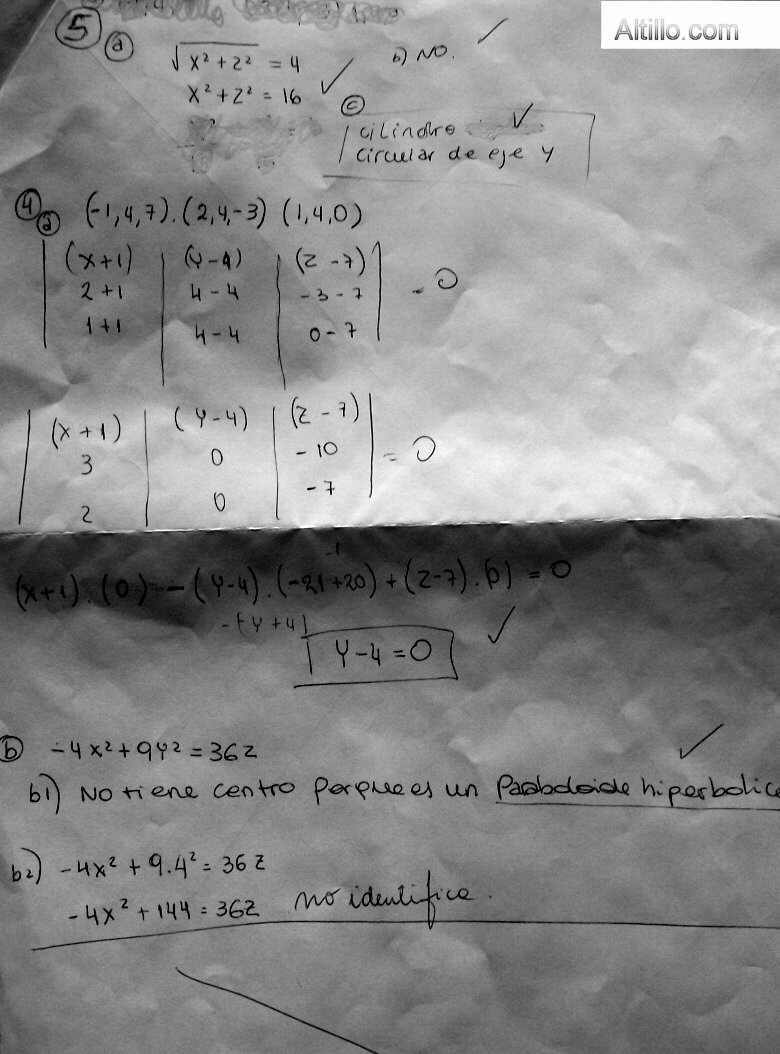 Altillo.com
5 a √x²+z² = 4 b) NO.
x²+z² = 16
c
cilindro
circular de eje y
4 a (-1,4,7).(2,4,-3) (1,4,0)
| (x+1) | (y-4) | (z-7) |
| 2+1 | 4-4 | -3-7 | = 0
| 1+1 | 4-4 | 0-7 |
| (x+1) | (y-4) | (z-7) |
| 3 | 0 | -10 | = 0
| 2 | 0 | -7 |
-1
(x+1).(0) - (y-4).(-21+20) + (z-7).(0) = 0
-(y+4)
y-4=0
b -4x²+9y²=36z
b1) No tiene centro porque es un Paraboloide hiperbolico
b2) -4x² + 9.4² = 36z
-4x² + 144 = 36z no identifica.